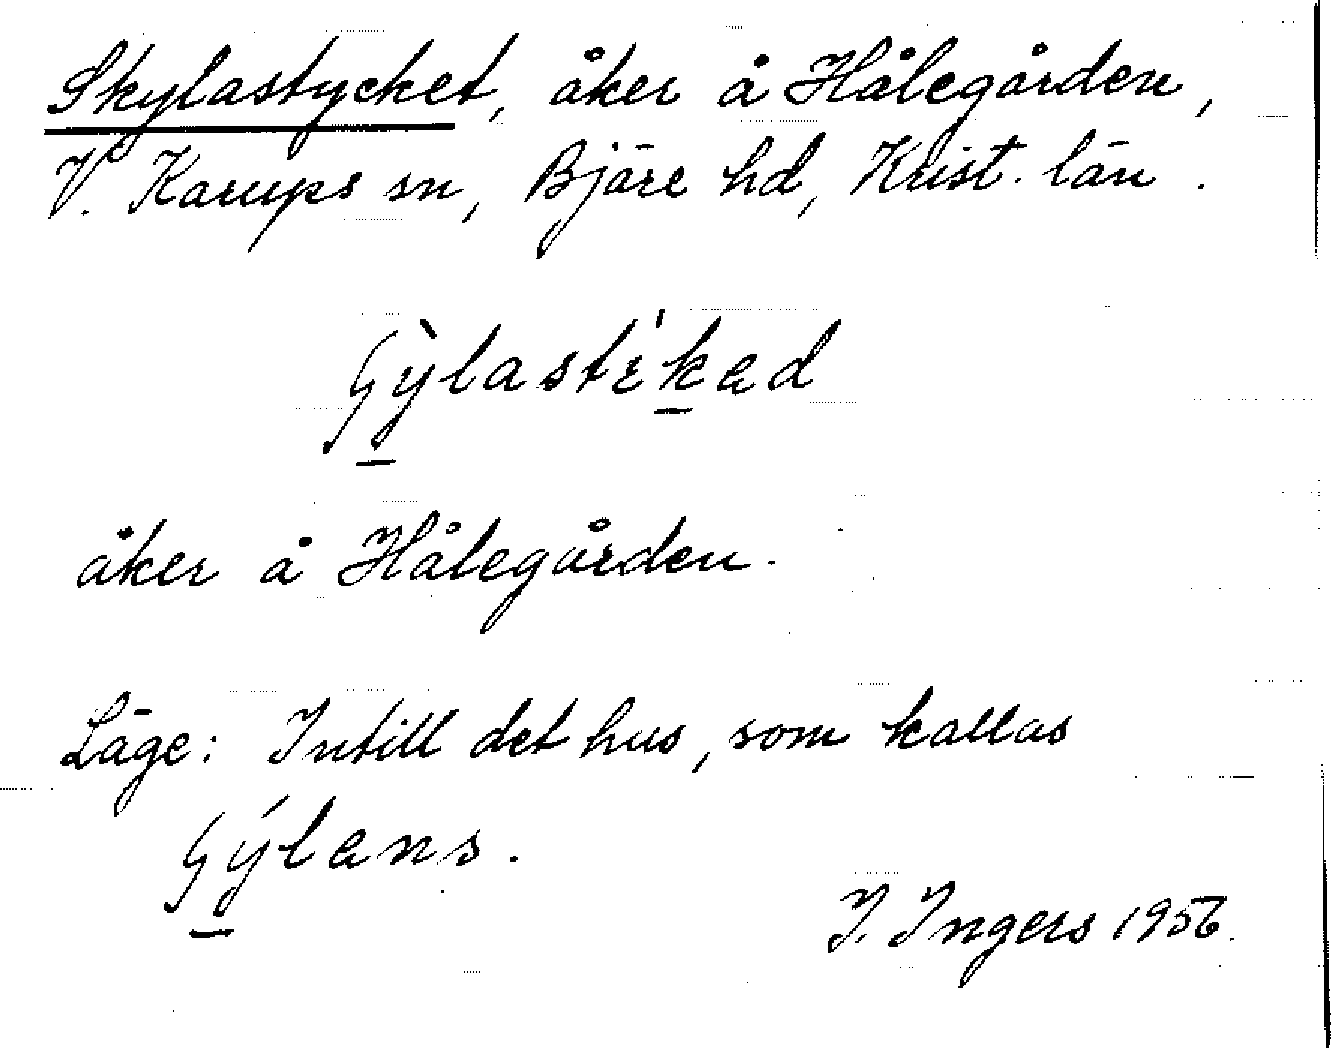 Skylastycket, åker å Hålegården,
V. Karups sn, Bjäre hd, Krist. län.
ʃỳlastɛ'kad
åker å Hålegården.
Läge: Intill det hus, som kallas
ʃýlans.
I. Ingers 1956.